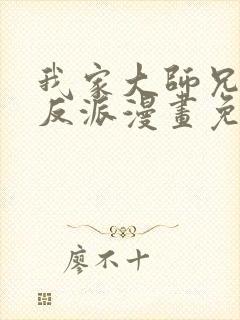 我家大師兄
反派漫畫免
廖不十